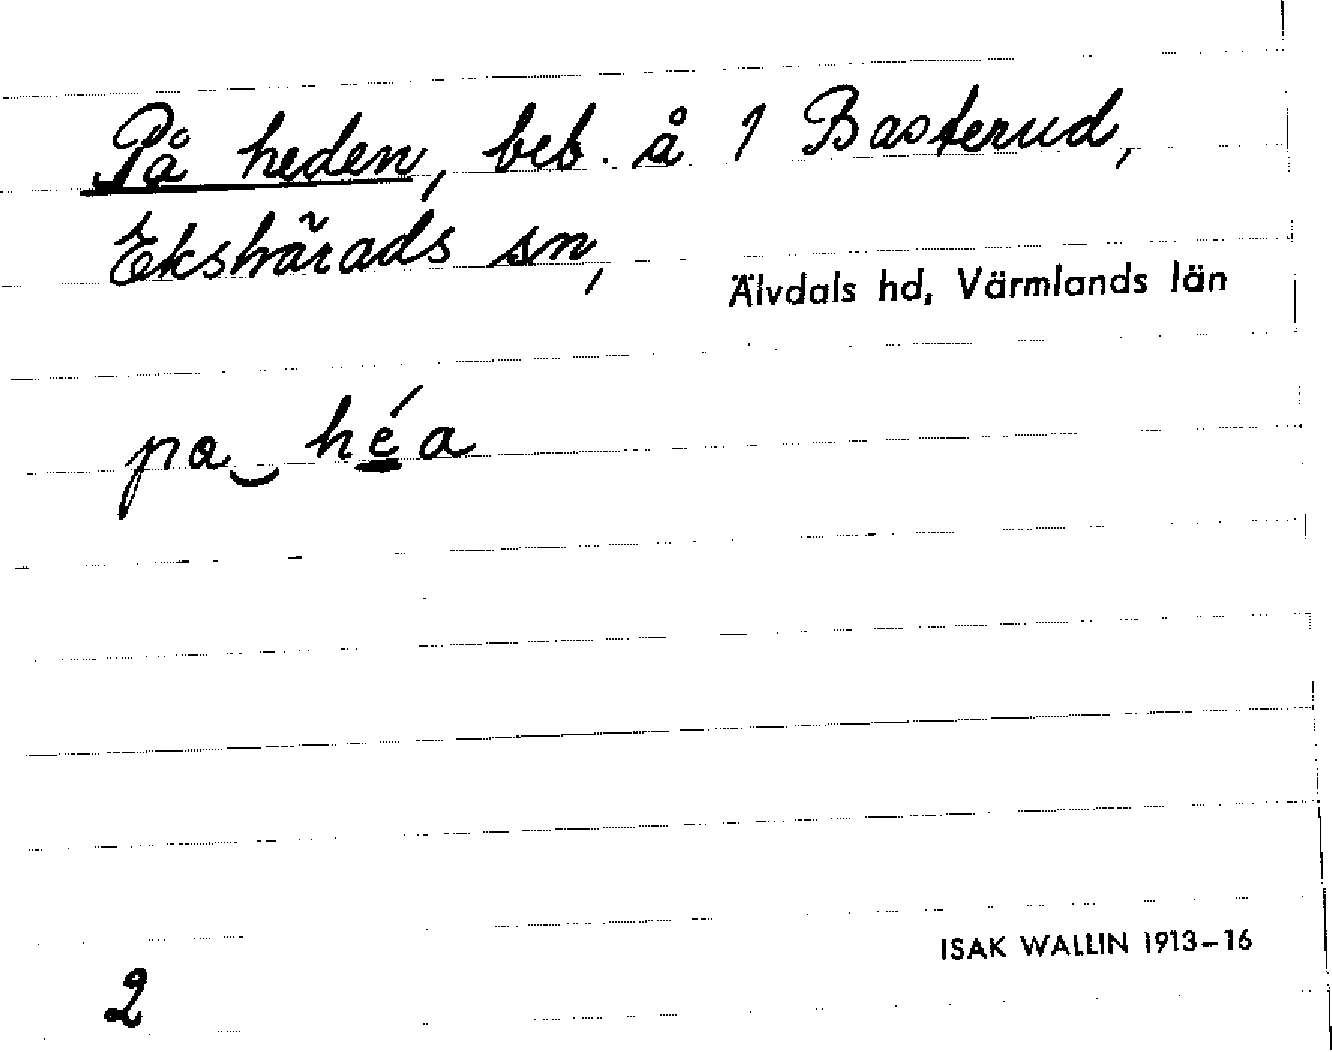 På heden, beb. å 1 Basterud,
Ekshärads sn,
Älvdals hd, Värmlands län
pa‿héa
ISAK WALLIN 1913–16
2